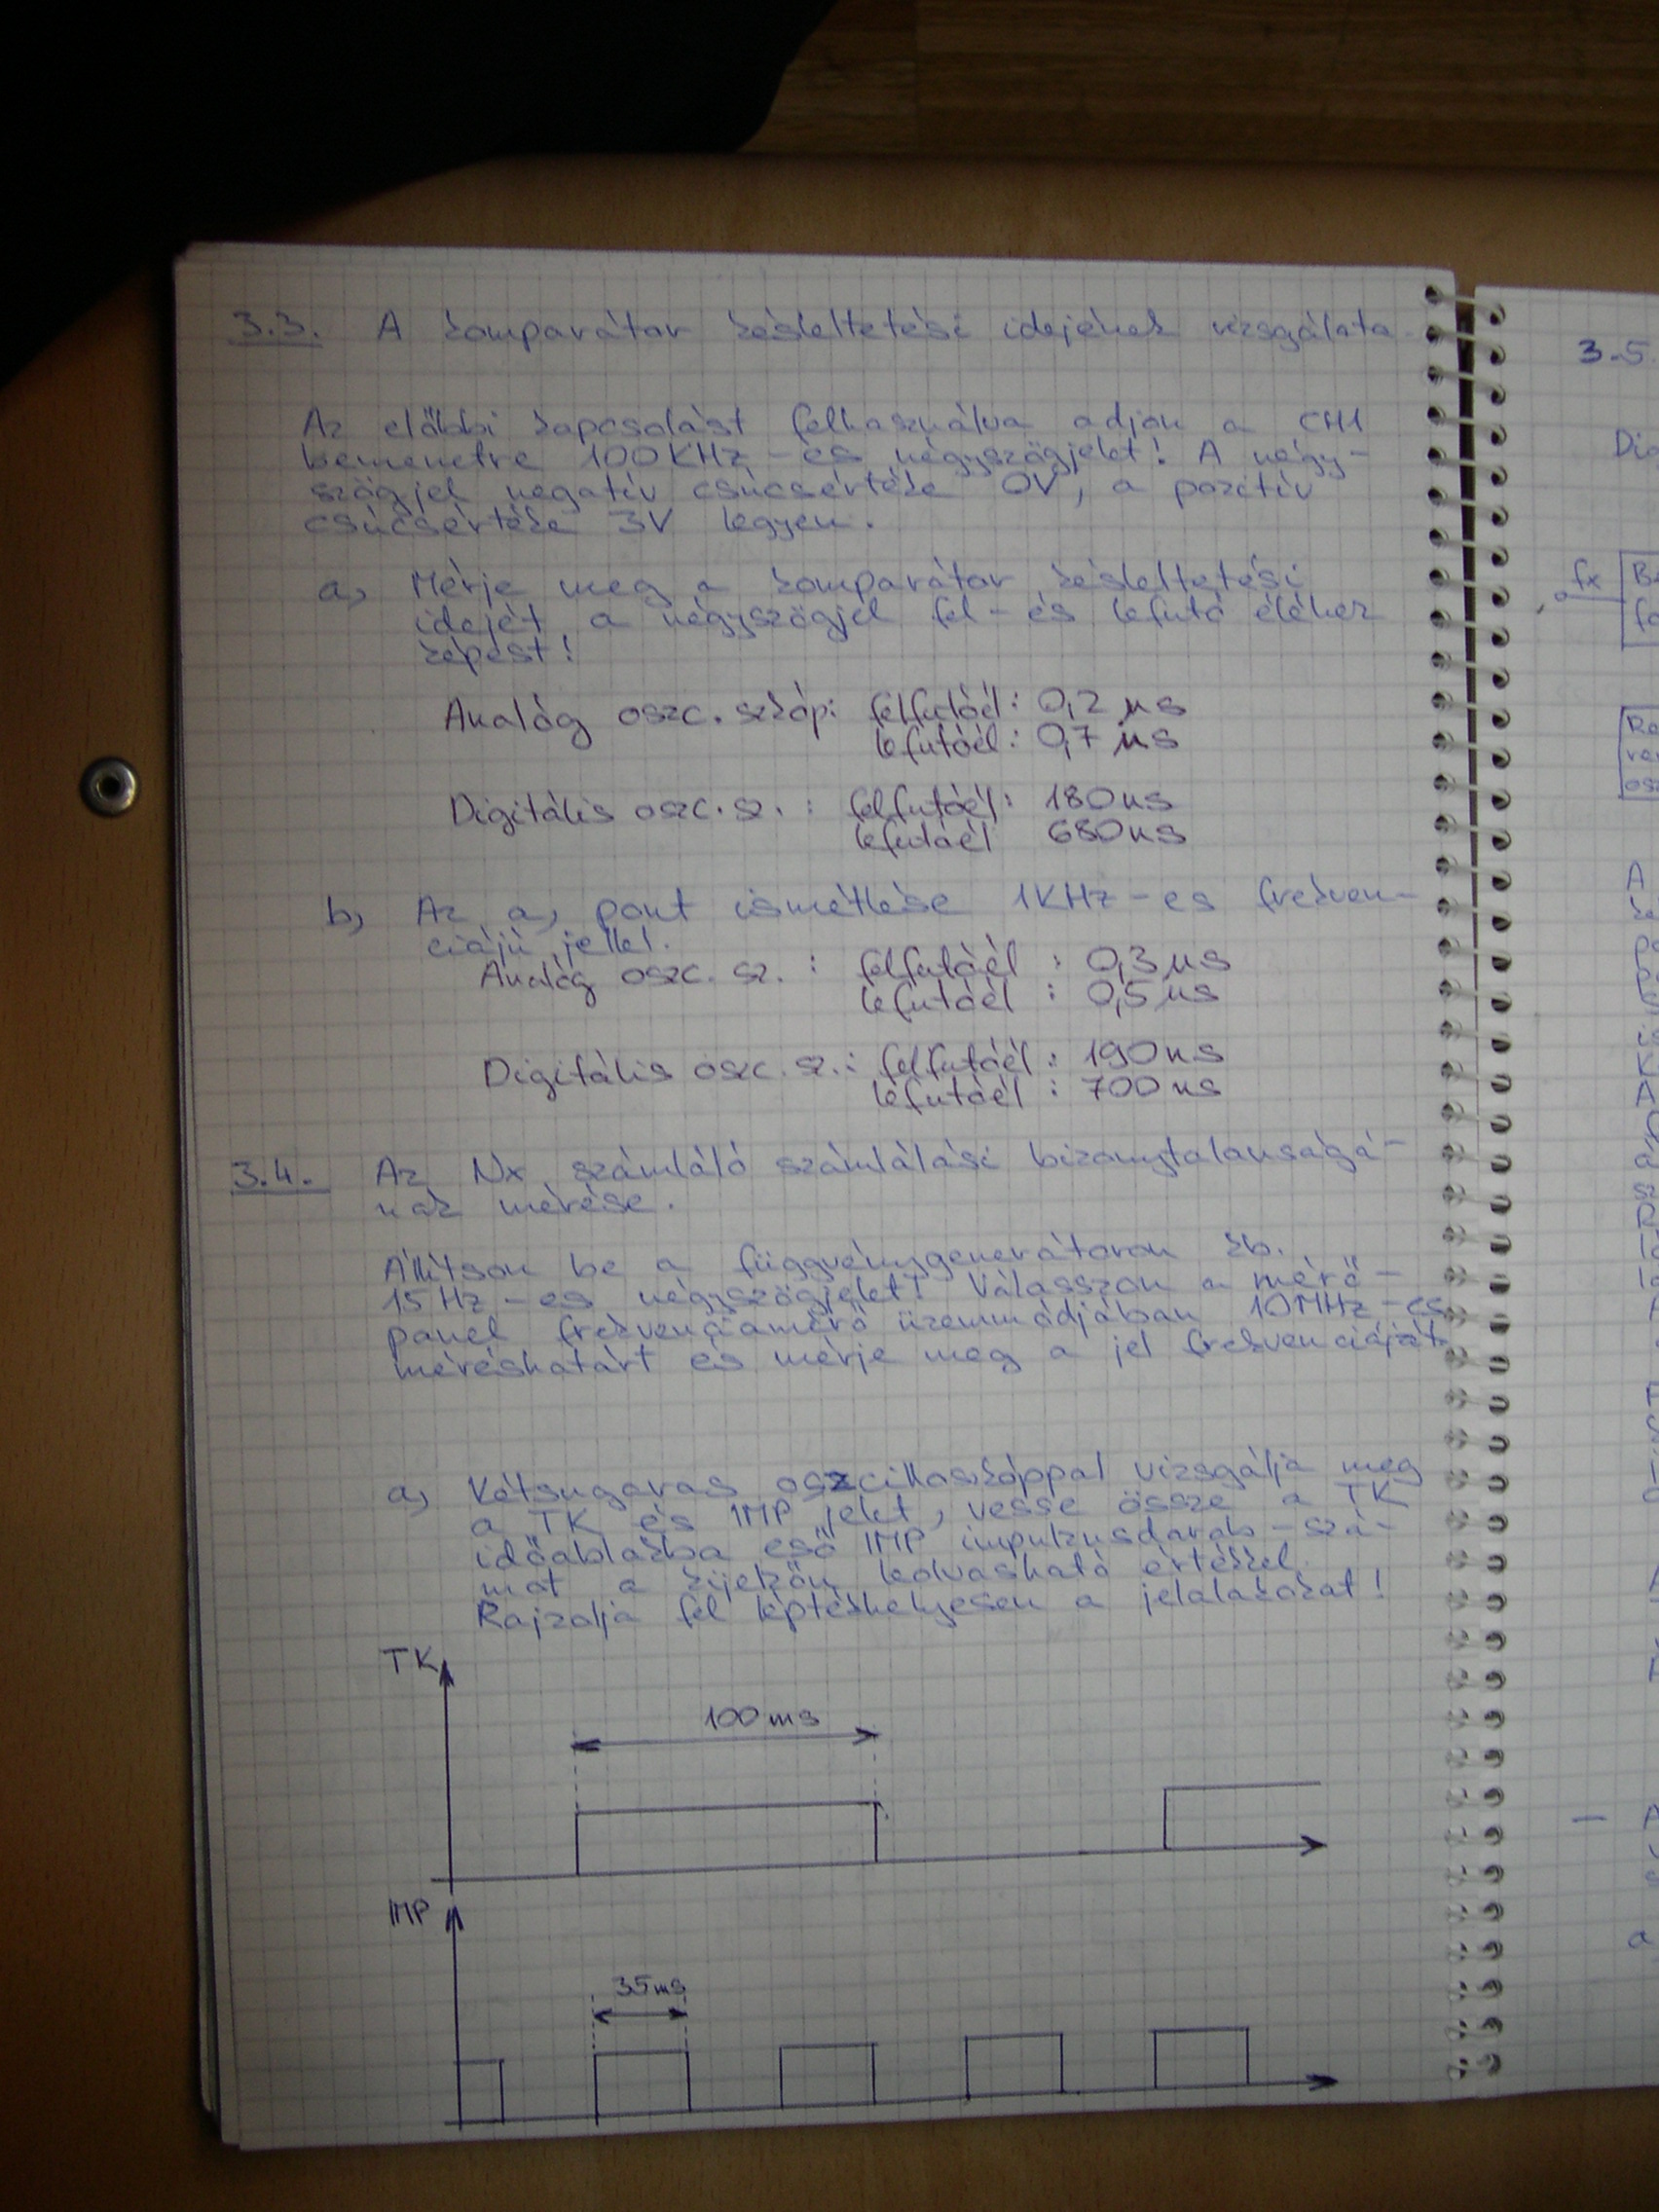 3.3. A komparátor késleltetési idejének vizsgálata
Az előbbi kapcsolást felhasználva adjon a CH1
bemenetre 100KHz-es négyszögjelet! A négy-
szögjel negatív csúcsértéke 0V, a pozitív
csúcsértéke 3V legyen.
a, Mérje meg a komparátor késleltetési
idejét a négyszögjel fel- és lefutó éléhez
képest!
Analóg oszc. szkóp: felfutóél: 0,2 µs
lefutóél: 0,7 µs
Digitális oszc. sz. : felfutóél: 180ns
lefutóél 680ns
b, Az a, pont ismétlése 1KHz-es frekven-
ciájú jellel.
Analóg oszc. sz. : felfutóél : 0,3 µs
lefutóél : 0,5 µs
Digitális oszc. sz.: felfutóél : 190ns
lefutóél : 700ns
3.4. Az Nx számláló számlálási bizonytalanságá-
nak mérése.
Állítson be a függvénygenerátoron kb.
15Hz-es négyszögjelet! Válasszon a mérő-
panel frekvenciamérő üzemmódjában 10MHz-es
méréshatárt és mérje meg a jel frekvenciáját
a, Kétsugaras oszcilloszkóppal vizsgálja meg
a TK és IMP jelet, vesse össze a TK
időablakba eső IMP impulzusdarab-szá-
mot a kijelzőn leolvasható értékkel.
Rajzolja fel léptékhelyesen a jelalakokat!
TK
100ms
IMP
35ms
3.5.
fx